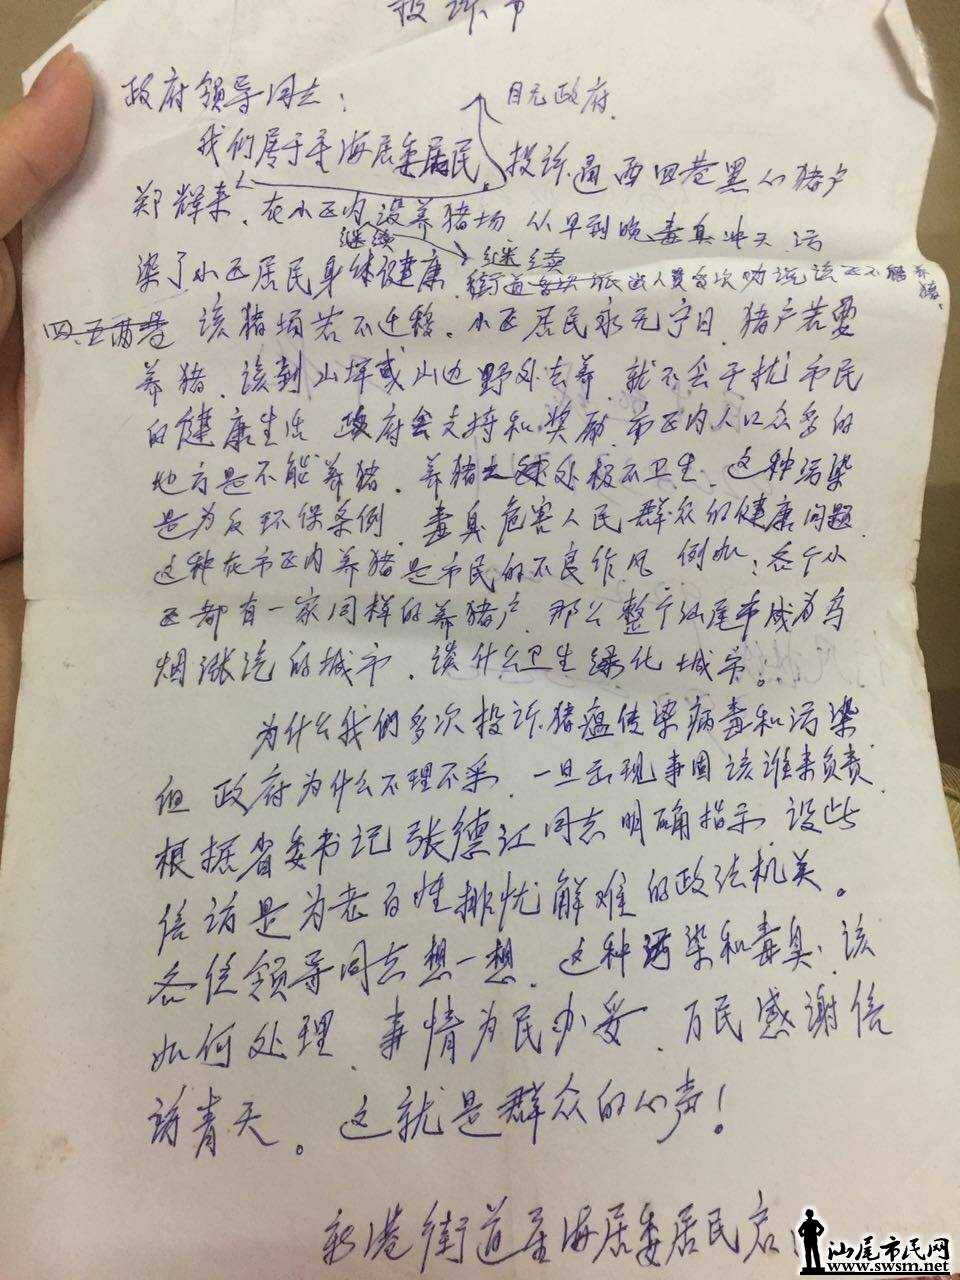 投诉书
政府领导同志：
目无政府.
我们属于 海居委居民 投诉通西四巷黑心猪户
郑辉来.在小区内设养猪场 从早到晚毒臭冲天 污
继续
染了小区居民身体健康.
继续
街道 派出人员多次劝说该 不能养
猪.
四.五两巷 该猪场若不迁移.小区居民永无宁日.猪户若要
养猪.该到山坪或山边野外去养.就不会干扰市民
的健康生活 政府会支持和奖励.市区内人口众多的
地方是不能养猪.养猪之 处极不卫生.这种污染
是为反环保条例.毒臭危害人民群众的健康问题.
这种在市区内养猪是市民的不良作风 例如：各个小
区都有一家同样的养猪户.那么整个汕尾市成为乌
烟涨汽的城市.谈什么卫生绿化城市。
为什么我们多次投诉.猪瘟传染病毒和污染
但政府为什么不理不采.一旦出现事因该谁来负责.
根据省委书记张德江同志明确指示 设此
信访是为老百姓排忧解难的政法机关。
各位领导同志想一想.这种污染和毒臭.该
如何处理.事情为民办妥.万民感谢信
访青天。这就是群众的心声！
新港街道 海居委居民启
汕尾市民网
www.swsm.net